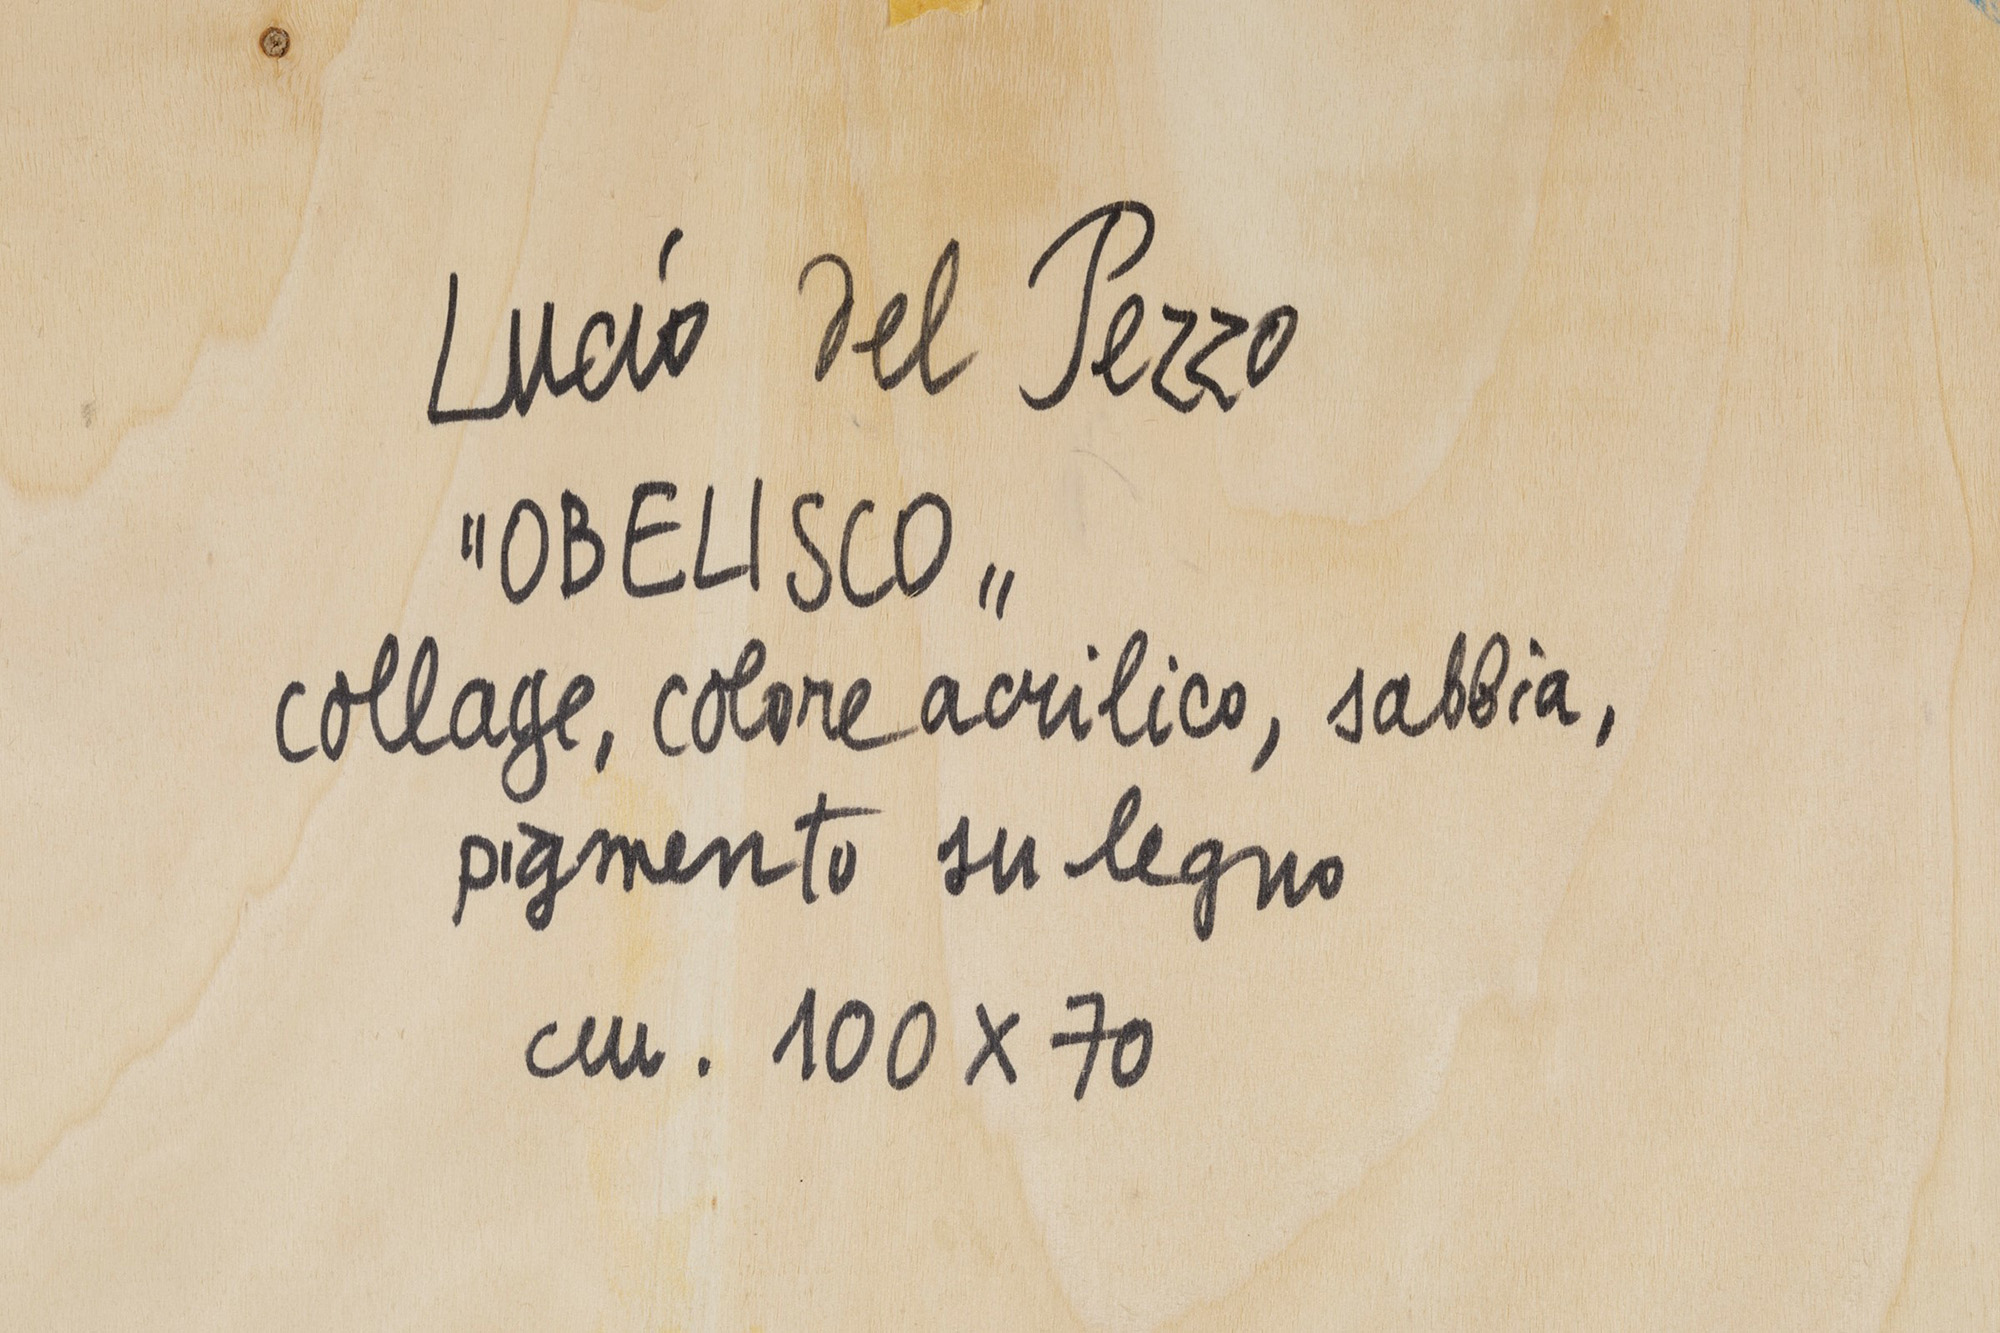 Lucio del Pezzo
"OBELISCO„
collage, colore acrilico, sabbia,
pigmento su legno
cm. 100 x 70